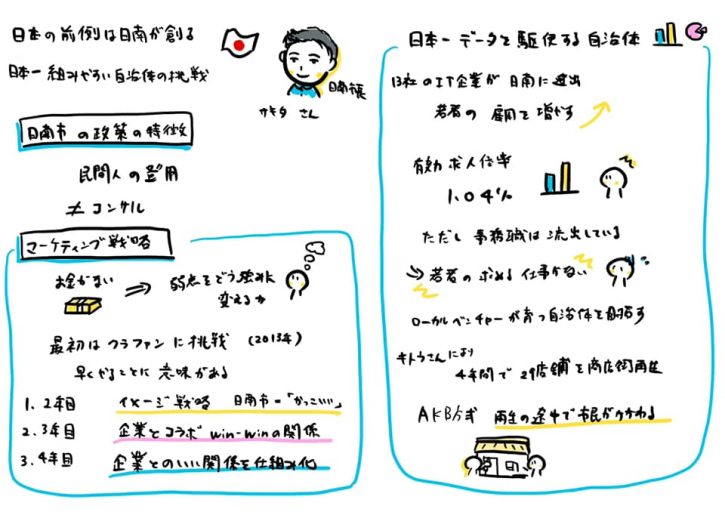 日本の前例は日南が創る
日本一 組みやすい自治体の挑戦
日南市長
サキタ さん
日南市の政策の特徴
民間人の登用
≠ コンサル
マーケティング戦略
お金がない
⇒ 弱点をどう強みに
変えるか
最初はクラファンに挑戦 (2013年)
早くやることに意味がある
1、2年目 イメージ戦略 日南市=「かっこいい」
2、3年目 企業とコラボ win-winの関係
3、4年目 企業とのいい関係を仕組み化
日本一データを駆使する自治体
13社のIT企業が日南に進出
若者の雇用を増やす
有効求人倍率
1.04%
ただし 事務職は流出している
→ 若者の求める仕事がない
ローカルベンチャーが育つ自治体を目指す
キトウさんにより
4年間で29店舗を商店街再生
AKB方式 再生の途中で市民がかかわる